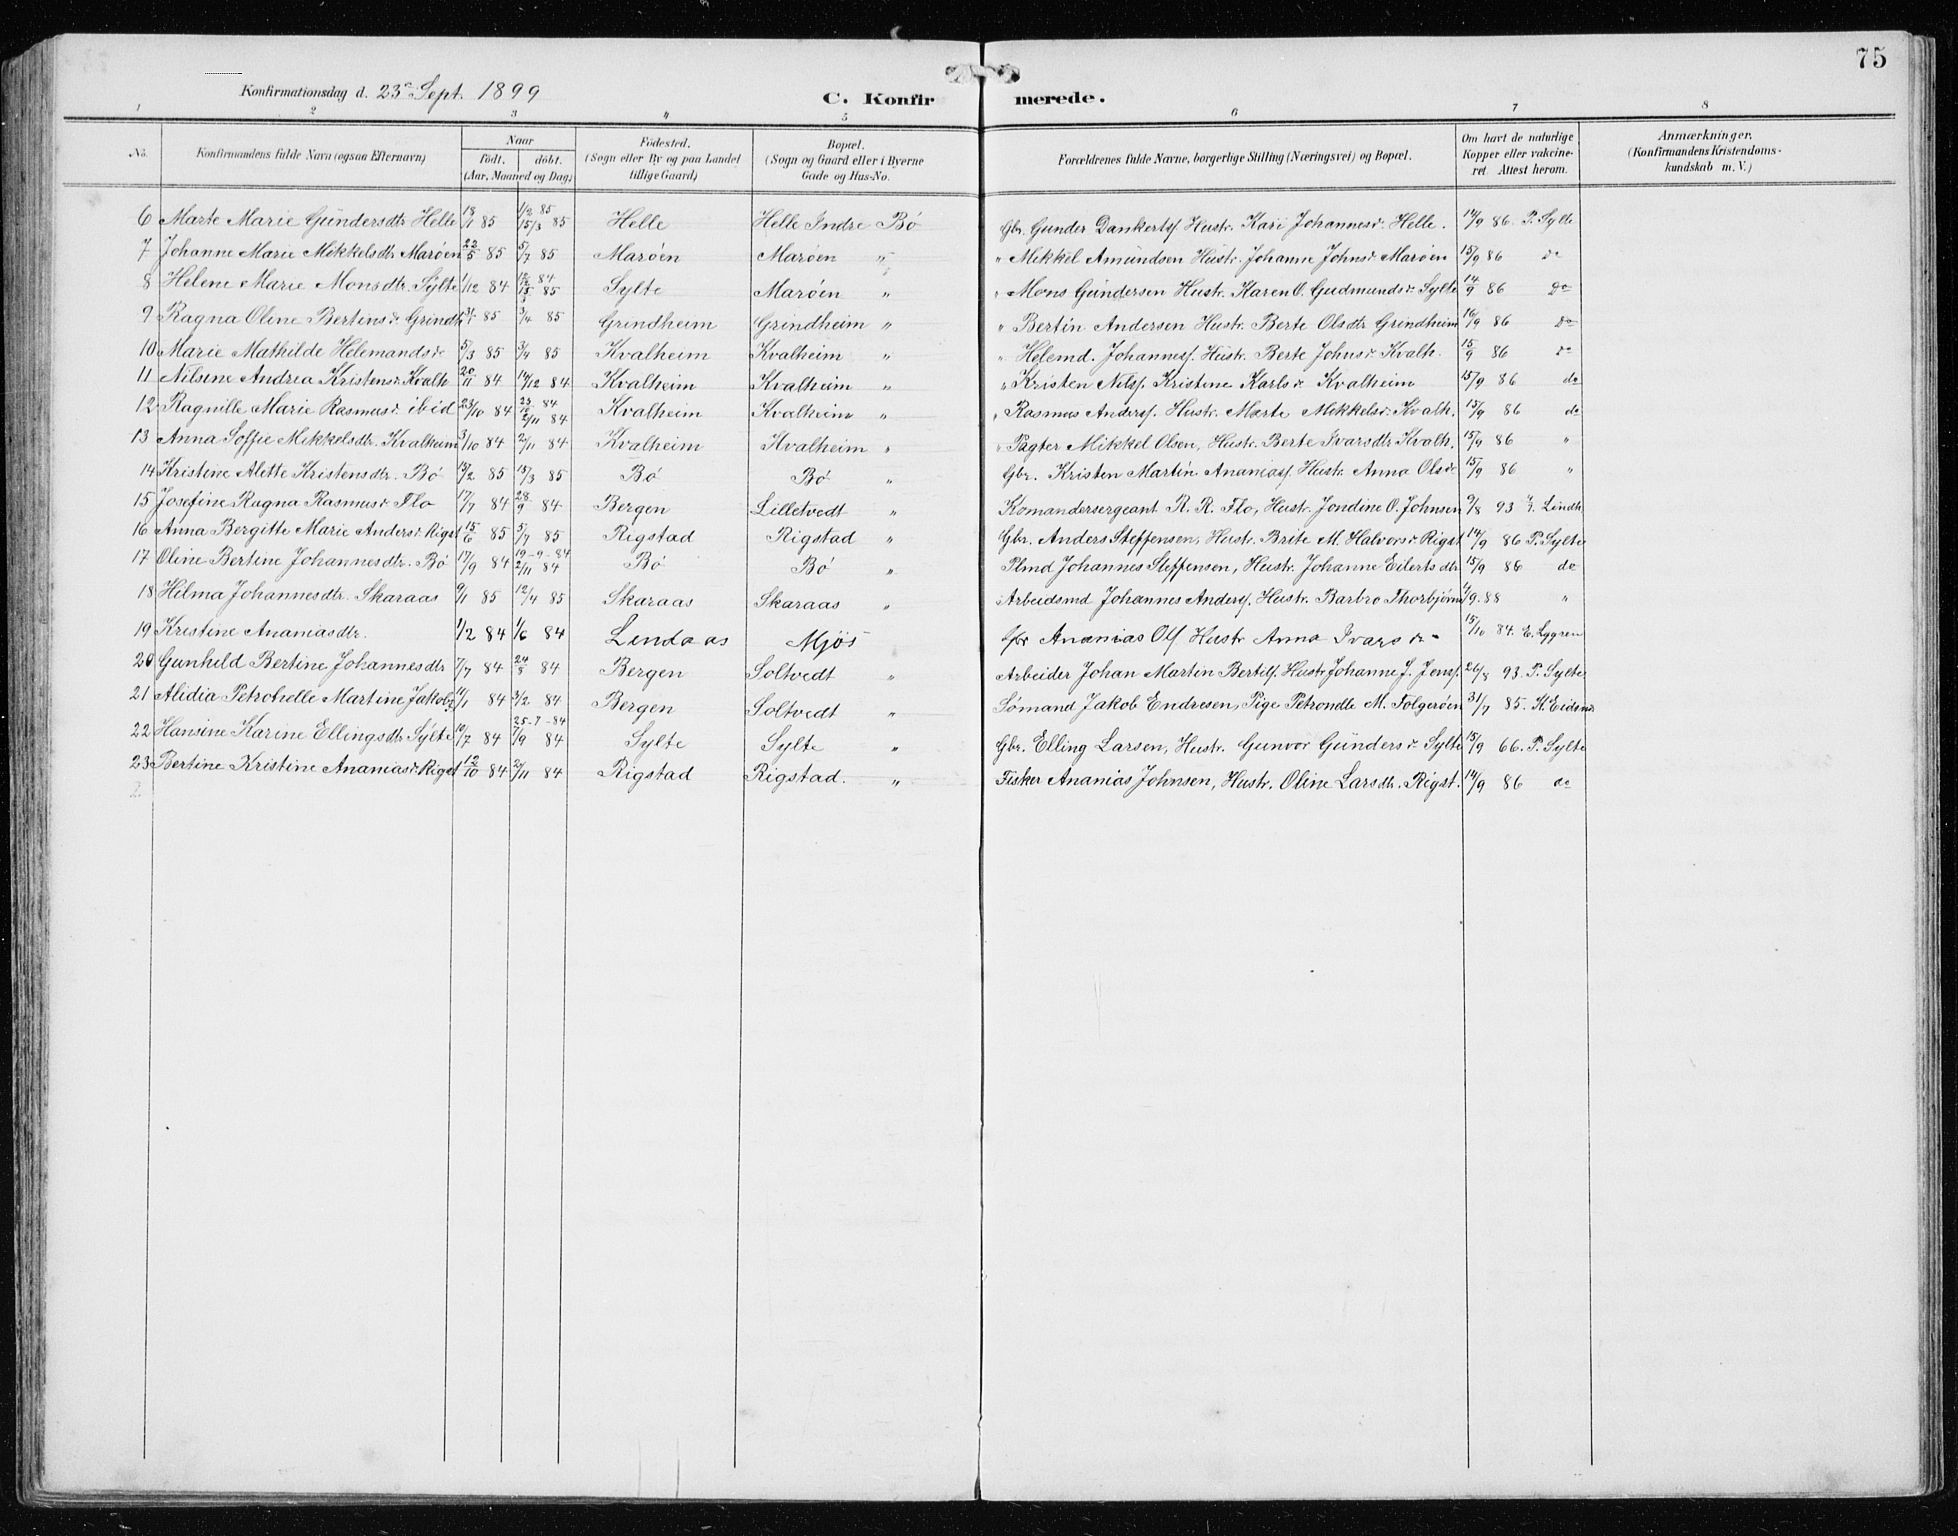 75
Konfirmationsdag d. 23de Sept. 1899
C. Konfir merede.
1 2 3 4 5 6 7 8
No. Konfirmandens fulde Navn (ogsaa Efternavn) Naar født. døbt. (Aar, Maaned og Dag) Fødested. (Sogn eller By og paa Landet tillige Gaard) Bopæl. (Sogn og Gaard eller i Byerne Gade og Hus-No. Forældrenes fulde Navne, borgerlige Stilling (Næringsvei) og Bopæl. Om havt de naturlige Kopper eller vakcineret Attest herom. Anmærkninger. (Konfirmandens Kristendomskundskab m. V.)
6 Marte Marie Gundersdtr Helle 18/1 85 1/2 85 15/3 85 Helle Helle Indre Bø Gbr. Gunder Dankerts. Hustr. Kari Johannesdr Helle. 14/9 86. P. Sylte
7 Johanne Marie Mikkelsdtr Marøen 22/5 85 5/7 85 Marøen Marøen " " Mikkel Amundsen Hustr. Johanne Johnsdr Marøen 15/9 86 do
8 Helene Marie Monsdtr. Sylte 1/12 84 12/12 84 15/3 85 Sylte Marøen " " Mons Gundersen Hustr. Karen O. Gudmundsdr Sylte 14/9 86 do
9 Ragna Oline Bertinsdr Grindh 3/1 85 3/4 85 Grindheim Grindheim " " Bertin Andersen Hustr. Berte Olsdtr Grindheim 16/9 86 do
10 Marie Mathilde Helemandsdr 5/3 85 3/4 85 Kvalheim Kvalheim " " Helemd. Johanness. Hustr. Berte Johnsdr Kvalh. 15/9 86 do
11 Nilsine Andrea Kristensdr Kvalh 20/11 84 14/12 84 Kvalheim Kvalheim " " Kristen Nilss. Kristine Karlsdr Kvalheim 15/9 86 do
12 Ragnille Marie Rasmusdr ibid 23/10 84 23/10 84 2/11 84 Kvalheim Kvalheim " " Rasmus Anders. Hustr. Marte Mikkelsdr Kvalh. 15/9 86 do
13 Anna Soffie Mikkelsdtr. Kvalheim 3/10 84 2/11 84 Kvalheim Kvalheim " " Pagter Mikkel Olsen, Hustr. Berte Ivarsdtr Kvalh. 15/9 86 "
14 Kristine Alette Kristensdtr. Bø 13/2 85 15/3 85 Bø Bø " Gbr. Kristen Martin Ananiass. Hustr. Anna Olsdr 15/9 86 "
15 Josefine Ragna Rasmusdr Flo 17/7 84 28/9 84 Bergen Lilletvedt " Komandersergeant R. R. Flo, Hustr. Jondine O. Johnsen 9/8 93 Lindh
16 Anna Bergitte Marie Andersdr Rigst 15/6 85 5/7 85 Rigstad Rigstad " Gbr. Anders Steffensen, Hustr. Brite M. Halvorsdr Rigst 14/9 86 P. Sylte
17 Oline Bertine Johannesdtr. Bø 17/9 84 19-9-84 2/11 84 Bø Bø " Plmd Johannes Steffensen, Hustr. Johanne Eilertsdtr 15/9 86 do
18 Hilma Johannesdtr. Skaraas 9/1 85 12/4 85 Skaraas Skaraas " Arbeidsmd Johannes Anders. Hustr. Barbro Thorbjørns 1/9 88 "
19 Kristine Ananiasdtr. 1/2 84 1/6 84 Lindaas Mjøs Gbr Ananias Ols. Hustr Anna Ivarsdr 15/10 84. E. Lygren
20 Gunhild Bertine Johannesdtr 7/7 84 24/8 84 Bergen Soltvedt " Arbeider Johan Martin Bertils. Hustr Johanne J. Jens. 26/8 93. P. Sylte
21 Alidia Petronelle Martine Jakobs 11/1 84 3/2 84 Bergen Soltvedt " Sømand Jakob Endresen, Pige Petronelle M. Folgerøen 31/7 85. K. Eidsnes
22 Hansine Karine Ellingsdtr Sylte 10/7 84 25-7-84 7/9 84 Sylte Sylte " Gbr. Elling Larsen, Hustr. Gunvor Gundersdr Sylte 15/9 66. P. Sylte
23 Bertine Kristine Ananiasdr Rigst 12/10 84 2/11 84 Rigstad Rigstad. " Fisker Ananias Johnsen, Hustr. Oline Larsdtr. Rigst. 14/9 86 do